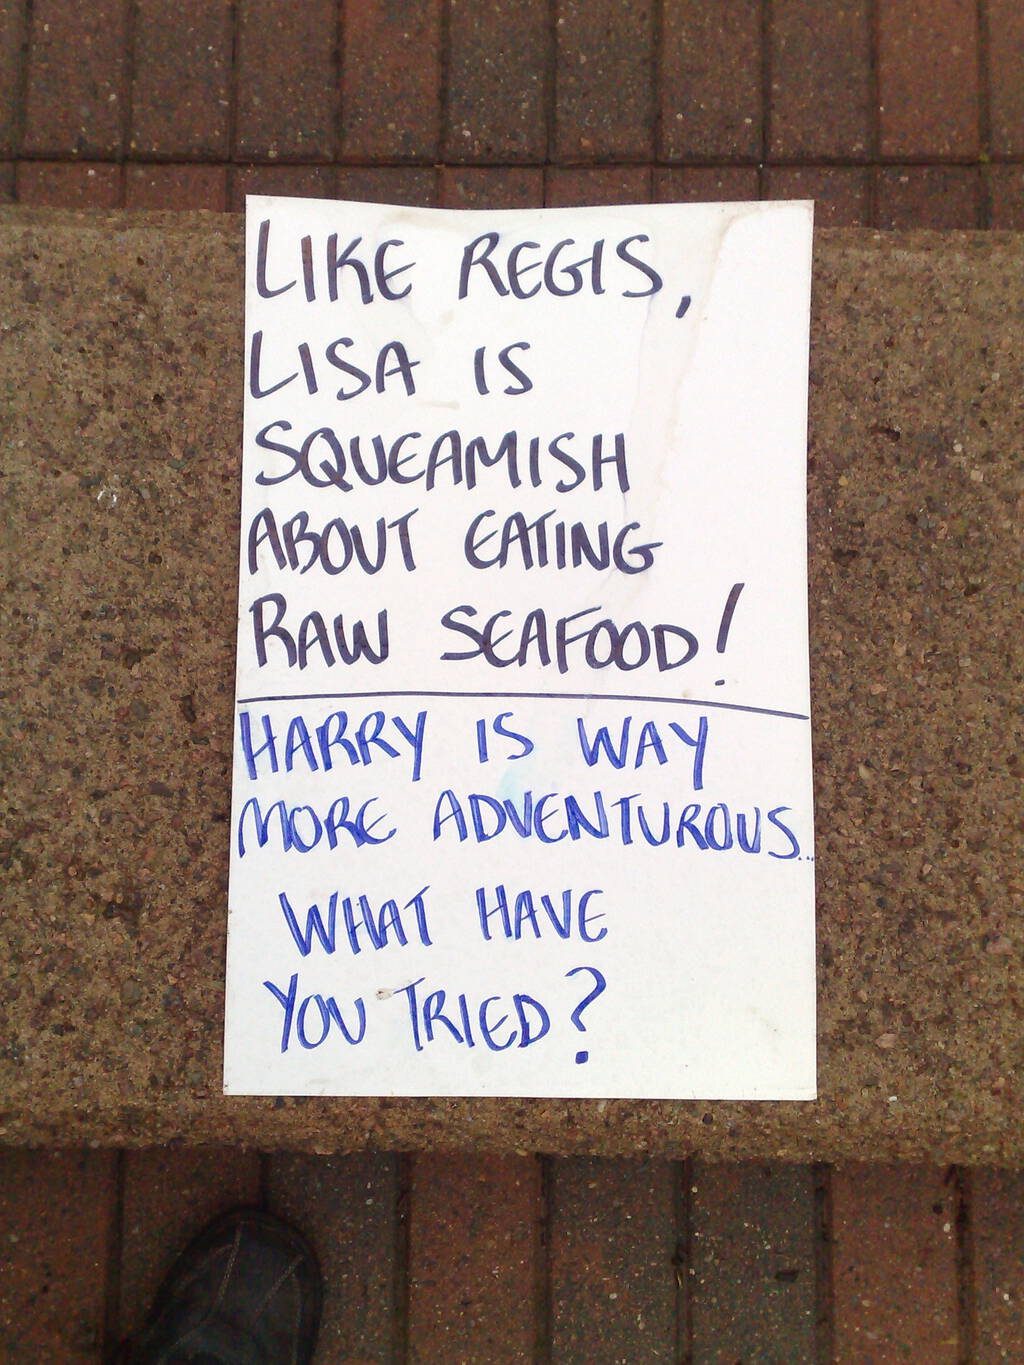 LIKE REGIS,
LISA IS
SQUEAMISH
ABOUT EATING
RAW SEAFOOD!
HARRY IS WAY
MORE ADVENTUROUS...
WHAT HAVE
YOU TRIED?